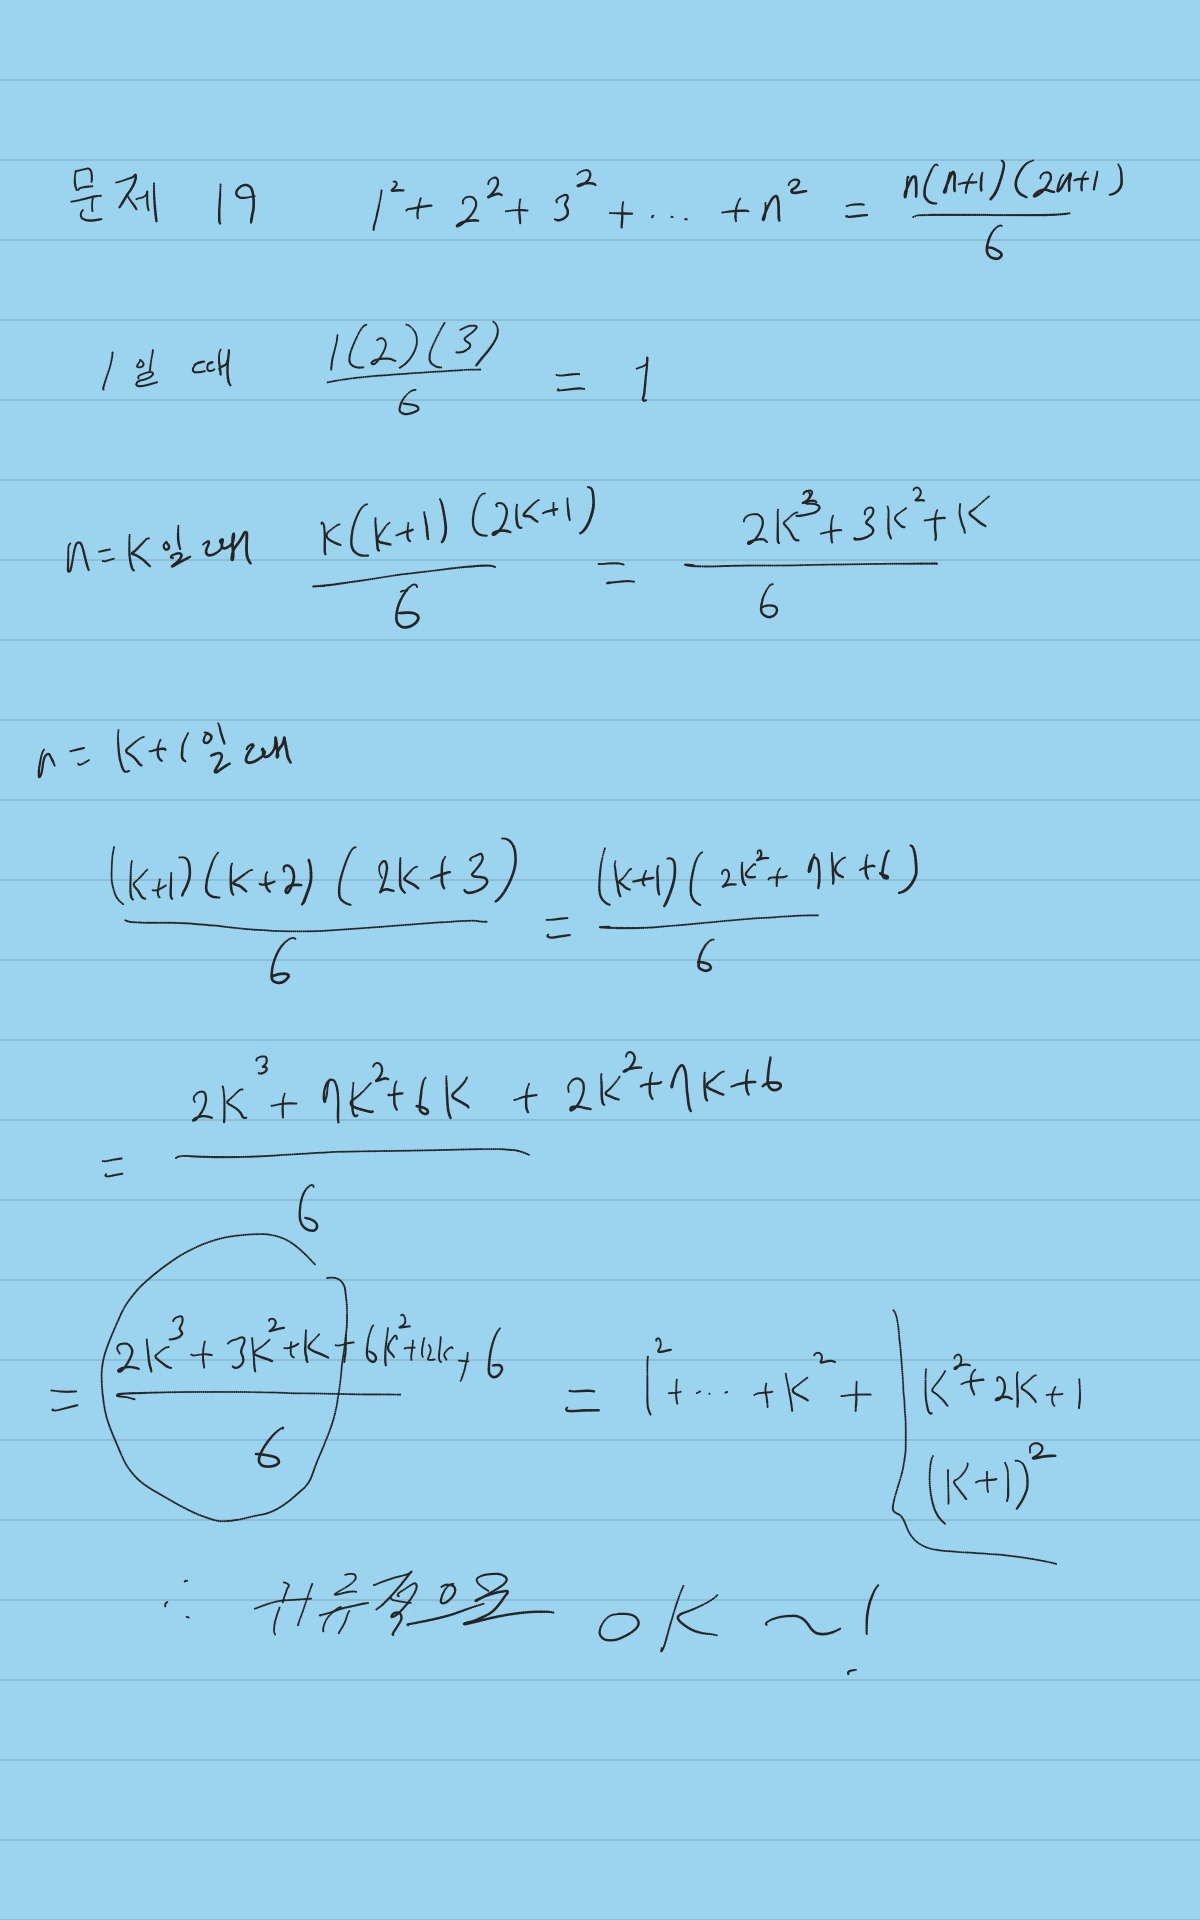 문제 19 1² + 2² + 3² + ... + n² = n(n+1)(2n+1)/6
1일 때 1(2)(3)/6 = 1
n=K일 때 K(K+1)(2K+1)/6 = 2K³+3K²+K/6
n= K+1일 때
(K+1)(K+2)(2K+3)/6 = (K+1)(2K²+7K+6)/6
= 2K³+7K²+6K + 2K²+7K+6/6
= 2K³+3K²+K+6K²+12K+6/6 = 1²+...+K²+ K²+2K+1
(K+1)²
∴ 귀류적으로 OK ~!